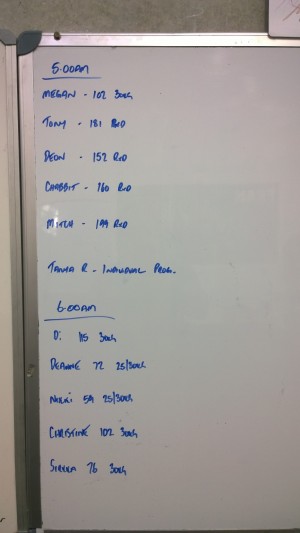 5:00AM
MEGAN - 102 30KG
TONY - 181 RXD
DEON - 152 RXD
CRABBIT - 160 RXD
MITCH - 199 RXD
TANYA R - INDIVIDUAL PROG.
6:00AM
Di 115 30KG
DEANNE 72 25/30KG
NIKKI 59 25/30KG
CHRISTINE 102 30KG
76 30KG